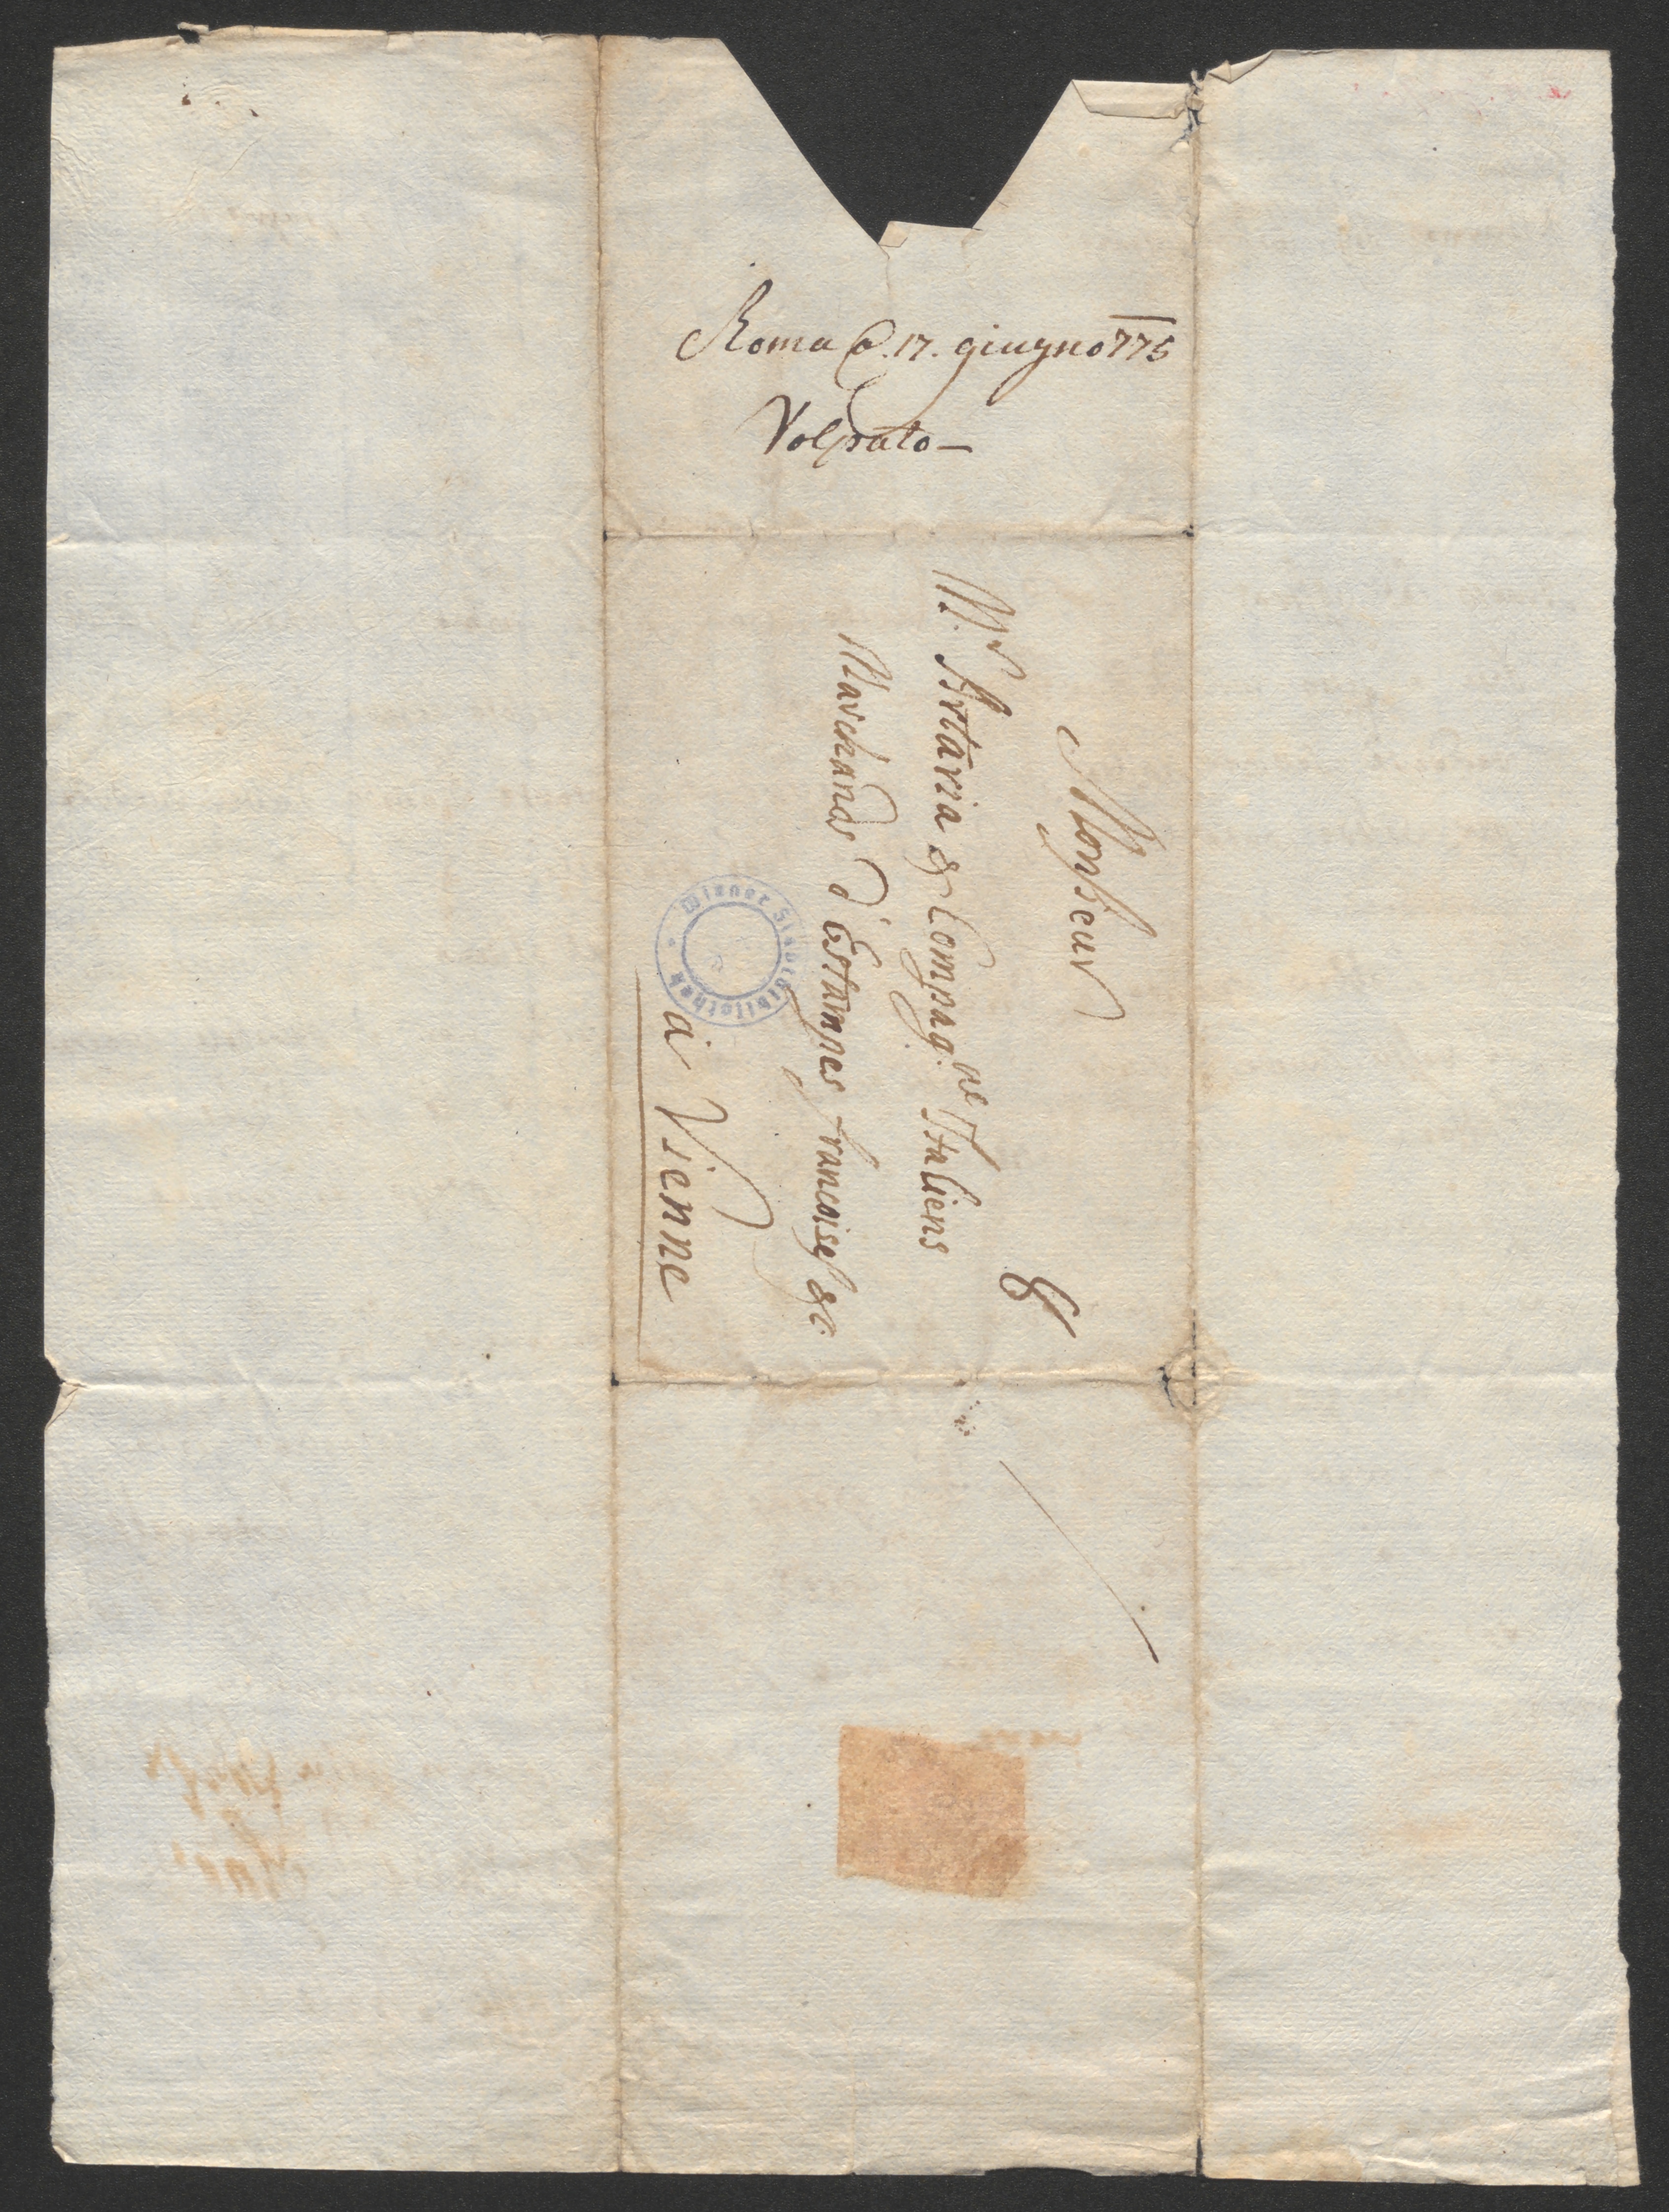 Roma a 17. giugno 775
Volpato
Monsieur
Mr. Artaria & Compag.ne Italiens
Marchands d'Estampes francoises &c.
à Vienne
Wiener Stadtbibliothek